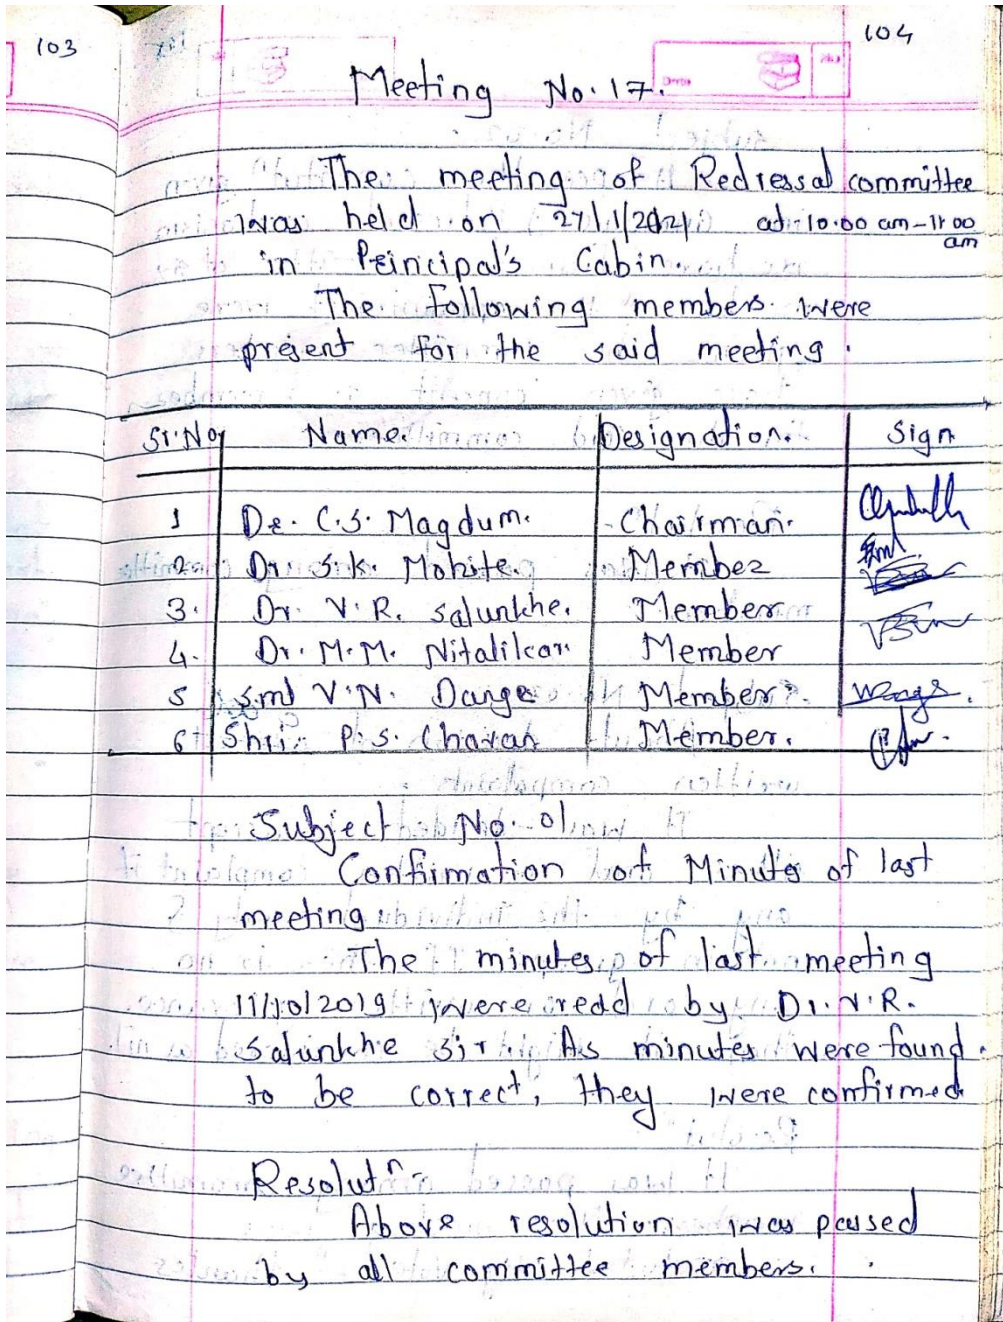 103
104
Meeting No. 17.
The meeting of Redressal committee
was held on 27/1/2021 at 10.00 am - 11.00
am
in Principal's Cabin.
The following members were
present for the said meeting.
Sr.No Name. Designation. Sign
1 Dr. C.S. Magdum. Chairman.
2. Dr. S.K. Mohite. Member
3. Dr. V.R. Salunkhe. Member
4. Dr. M.M. Nitalikar. Member
5 Smt V.N. Dange Member.
6 Shri. P.S. Chavan Member.
Subject No. 01
Confirmation of Minutes of last
meeting.
The minutes of last meeting
11/10/2019 were read by Dr. V.R.
Salunkhe sir. As minutes were found
to be correct, they were confirmed
Resolutn
Above resolution was passed
by all committee members.